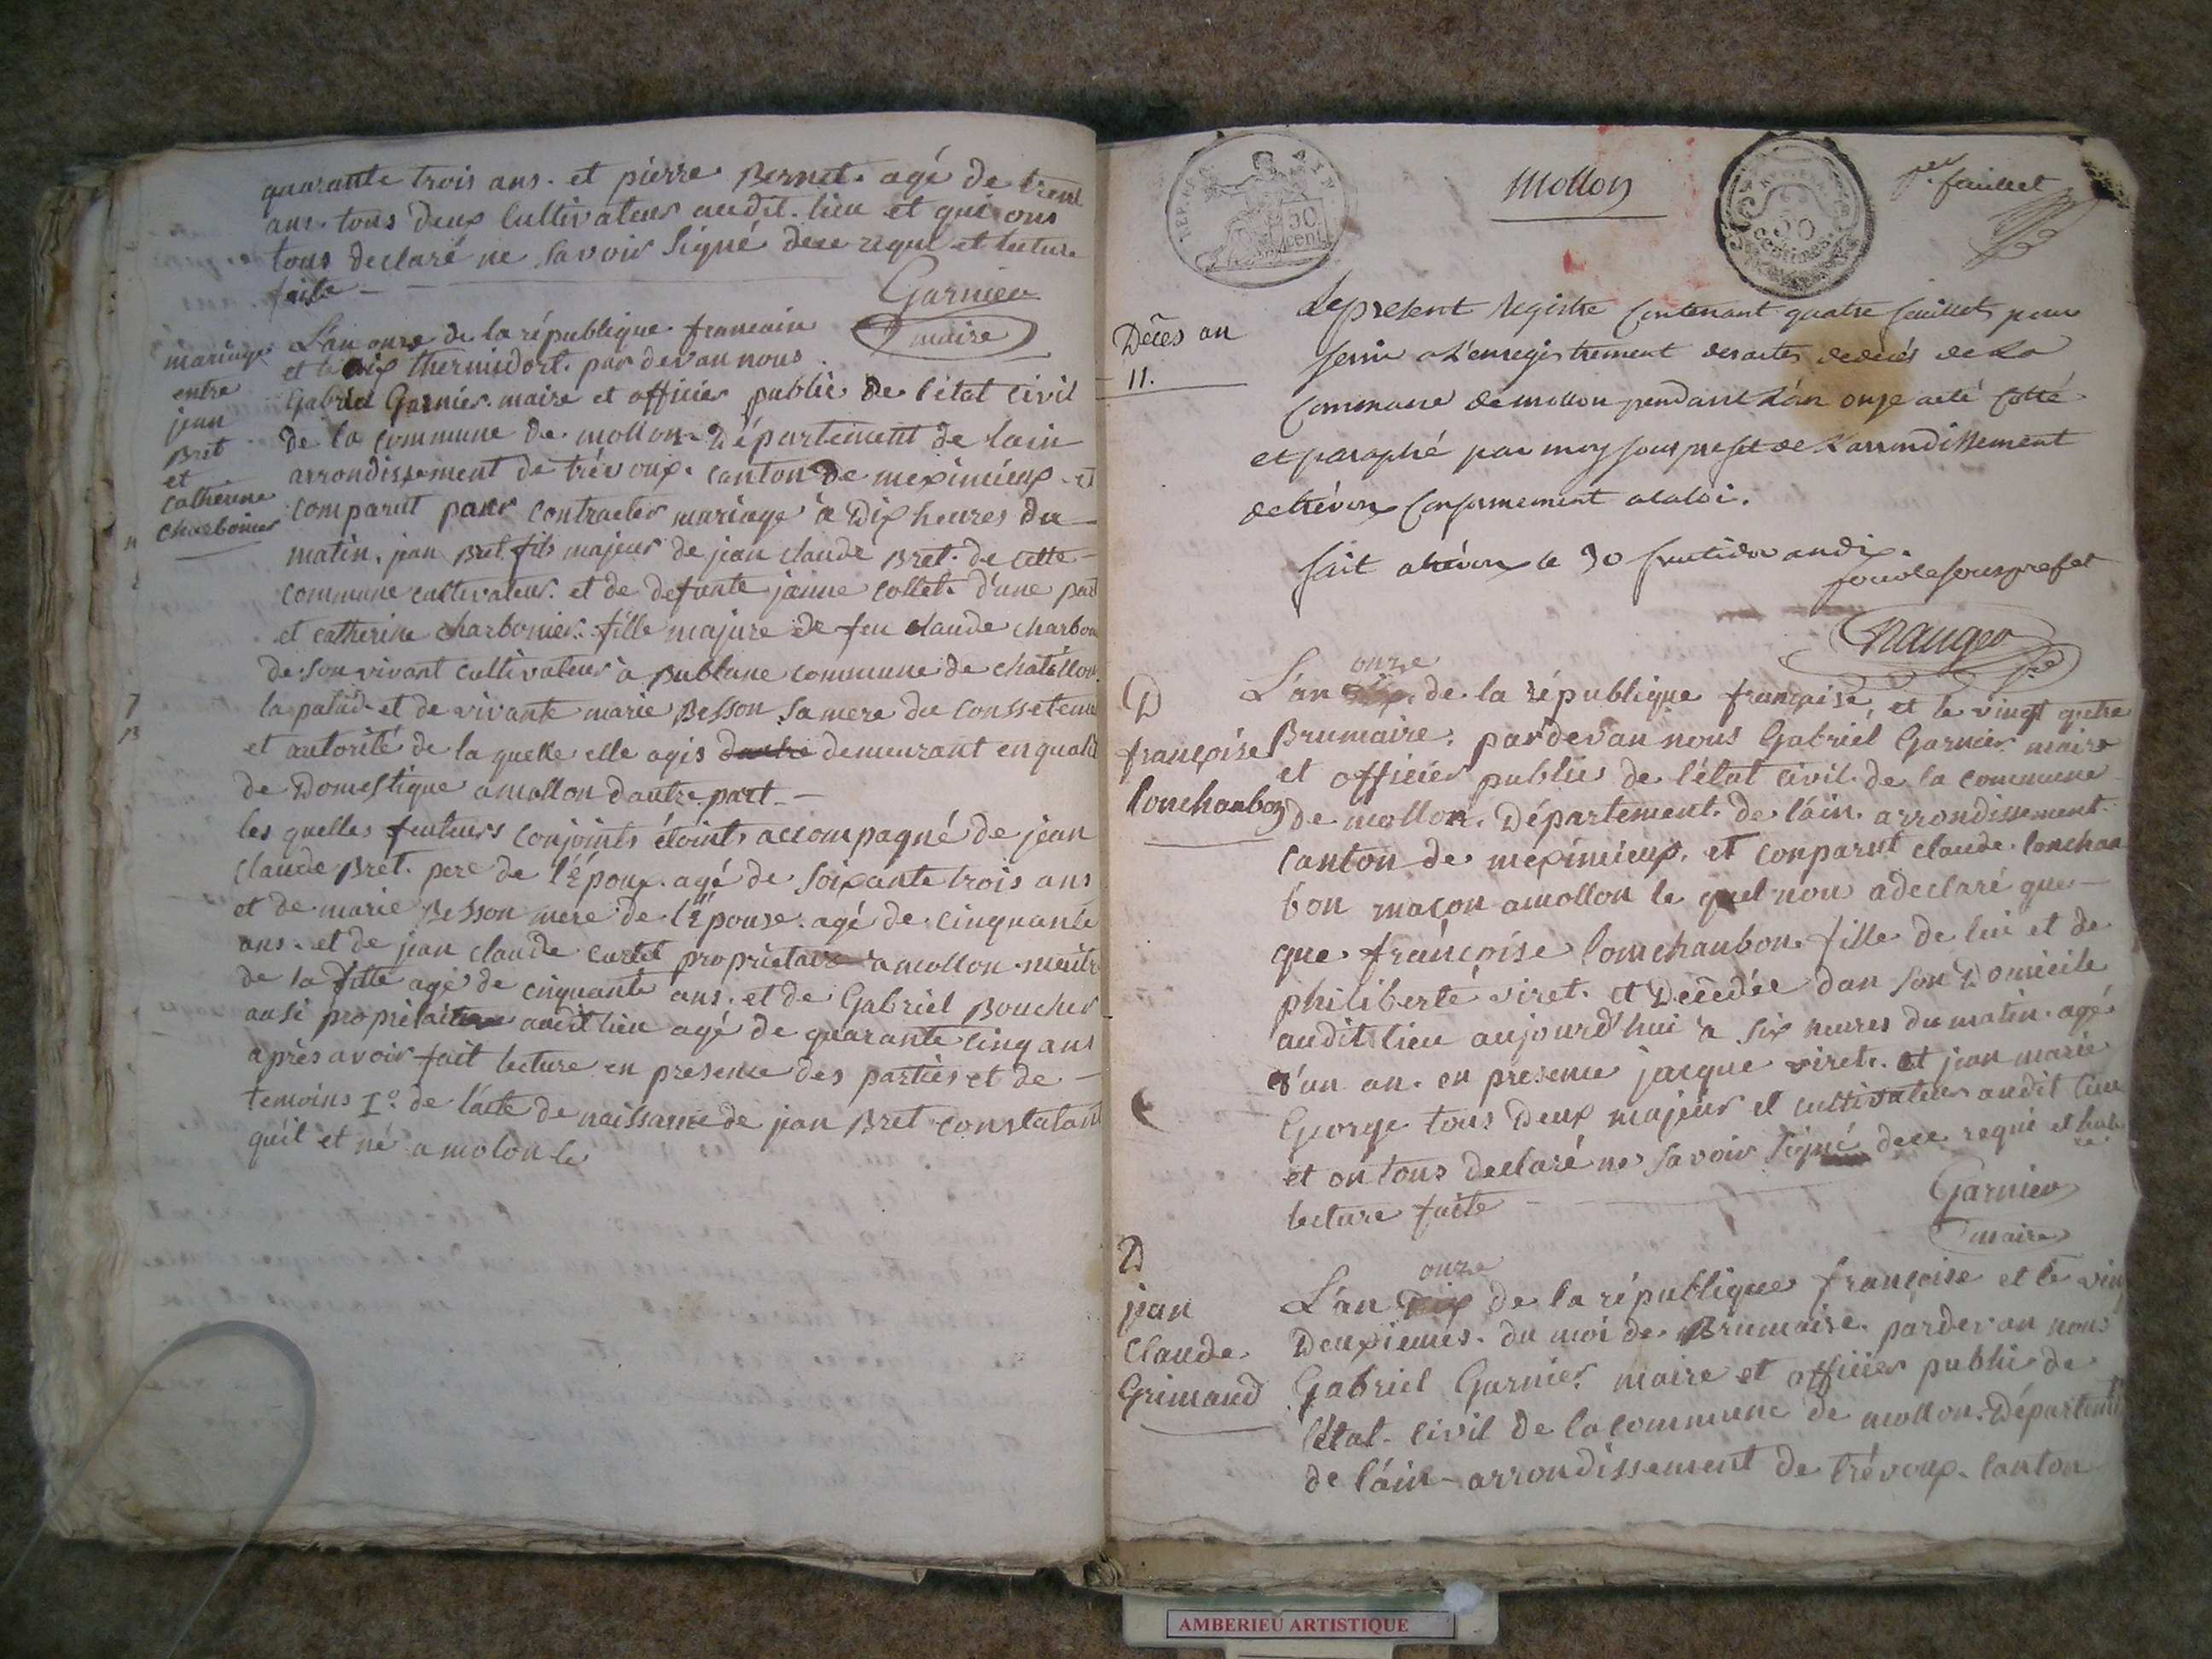 quarante trois ans. et pierre Bernet. agé de trent
ans. tous deux Cultivateur audit. lieu et qui ons
tous declaré ne savoir signé dece requi et lecture
faite
Garnier
maire
mariage
entre
jean
Bret
et
catherine
charbonier
L'an onze de la république francain
et le dix thermidort. par devan nous
Gabriel Garnier. maire et officier public de l'état civil
de la commune de mollon. Département de lain
arrondissement de trévoux. canton de meximieux. et
comparut pour contracter mariage à Dix heures du
matin. jean Bret. fils majeur de jean claude Bret. de cette
commune cultivateur. et de defunte jeanne Collet. d'une part
et catherine charbonier. fille majure de feu claude charbon
de son vivant cultivateur à Publane commune de chatillon
la palud. et de vivante marie Besson sa mere du conssetem
et autorité de la quelle elle agis dautre demeurant en qualit
de Domestique a mollon dautre part
les quelles futurs conjoints étoints accompagné de jean
Claude Bret. pere de l'époux. agé de soixante trois ans
et de marie Besson mere de l'épouse. agé de cinquante
ans. et de jean claude cartet proprietaire a mollon
de la fille agé de cinquante ans. et de Gabriel Boucher
ausi proprietaire audit lieu agé de quarante cinq ans
après avoir fait lecture en presence des parties et de
temoins 1º. de l'acte de naissance de jean Bret constatant
quil et né a molon le
Mollon
REP. FRA
50
cent.
50
centimes
1er. feuillet
Decès an
11.
Le present Registre Contenant quatre feuillets pour
servir a L'enregistrement des actes de decés de La
Commune de mollon pendant L'an onze a eté Cotté
et paraphé par moy sous prefet de L'arrondissement
de trévoux Conformement a la loi.
fait a trévoux le 30 fructidor an dix.
pour le sous prefet
D
françoise
lonchanbon
onze
L'an dix. de la république françoise, et le vingt quatre
Brumaire. pardevan nous Gabriel Garnier maire
et officier public de l'état civil. de la commune
de mollon. Département. de l'ain. arrondissement.
Canton de meximieux. et conparut claude. lonchan
bon maçon a mollon le quel nous a declaré que
que. françoise lomchanbon. fille de lui et de
philiberte viret. et Decedée dan son Domicile
audit lieu aujourd'hui a six heures du matin. agé
d'un an. en presence jacque viret. et jean marie
George tous Deux majeur et cultivateur audit lieu
et on tous declaré ne savoir signé dece requi et
lecture faite
Garnier
maire
D
jean
Claude
Grimaud
onze
L'an Dix de la république françoise et le vin
Deuxiemes. du moi de. Brumaire. pardevan nous
Gabriel Garnier. maire et officier public de
l'état. civil de la commune de mollon. Départem
de l'ain. arrondissement de trévoux. canton
AMBERIEU ARTISTIQUE